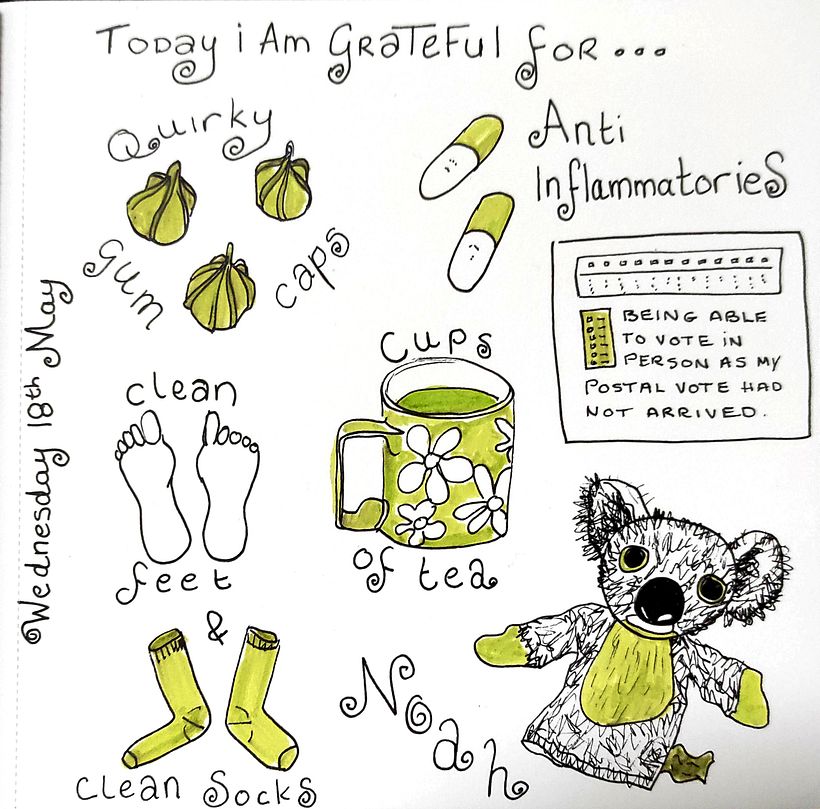 Today i Am GRATEFUL FOR...
Quirky
gum caps
Anti
InflammatorieS
BEING ABLE
TO VOTE iN
PERSON AS MY
POSTAL VOTE HAD
NOT ARRIVED.
Wednesday 18th May
clean
feet
&
clean Socks
cups
of tea
Noah